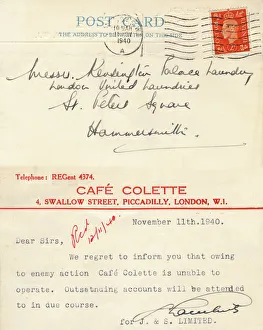 POST CARD
THE ADDRESS TO BE WRITTEN ON THIS SIDE
1940
A
Messrs. Kensington Palace Laundry
London United Laundries
St. Peters Square
Hammersmith.
Telephone: REGent 4374.
CAFÉ COLETTE
4, SWALLOW STREET, PICCADILLY, LONDON, W.1.
November 11th.1940.
Dear Sirs,
Recd 12/11/40
We regret to inform you that owing
to enemy action Café Colette is unable to
operate. Outstanding accounts will be attended
to in due course.
for J. & S. LIMITED.